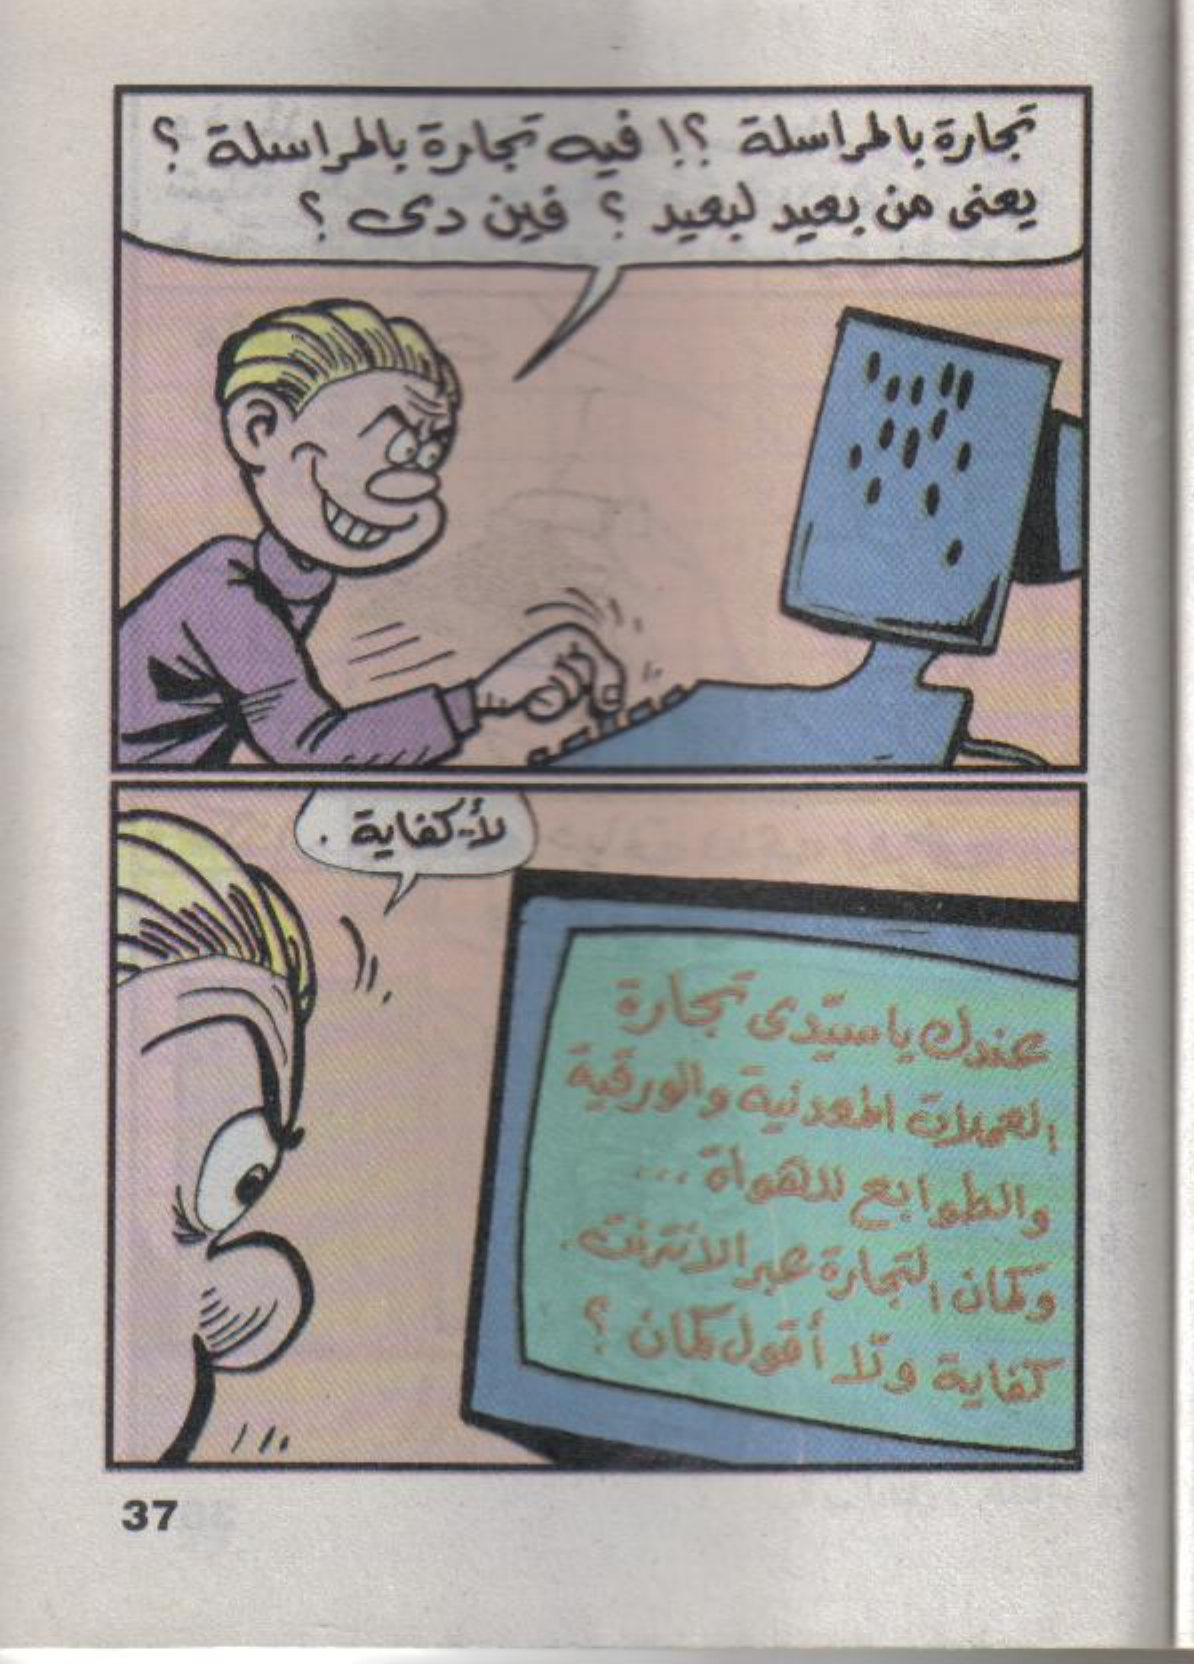 تجارة بالمراسلة ؟! فيه تجارة بالمراسلة ؟
يعنى من بعيد لبعيد ؟ فين دى ؟
لأ.. كفاية .
عندك يا سيّدى تجارة
العملات المعدنية والورقية
والطوابع للهواة ...
وكمان التجارة عبر الانترنت .
كفاية ولّا أقول كمان ؟
37